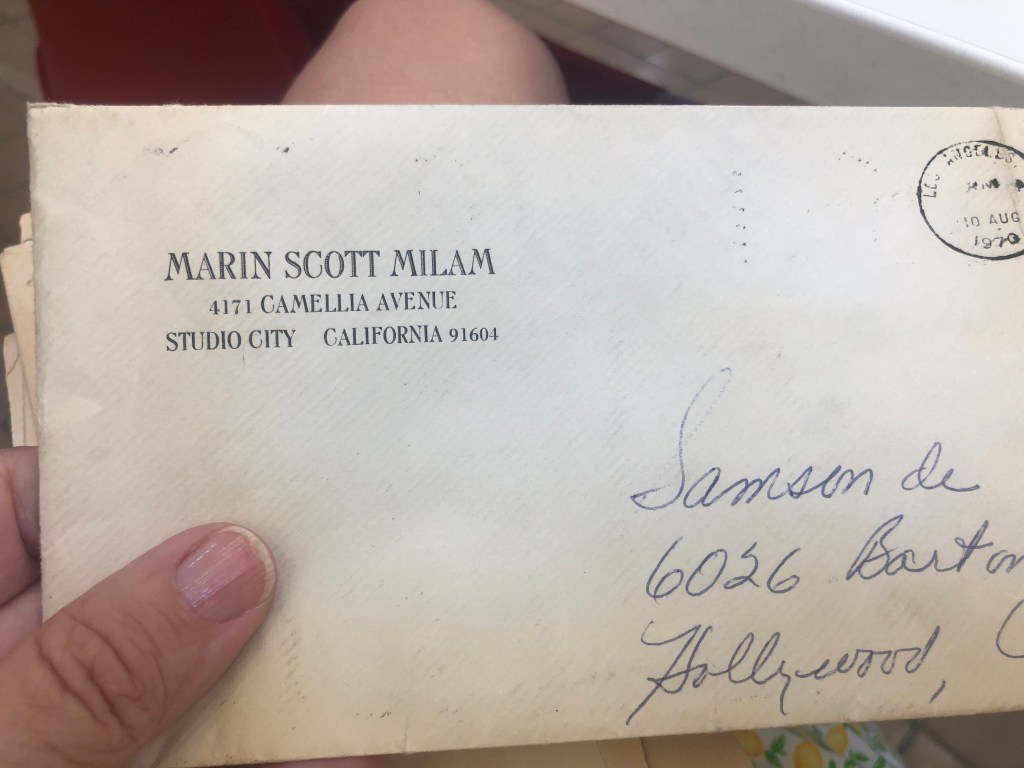 MARIN SCOTT MILAM
4171 CAMELLIA AVENUE
STUDIO CITY CALIFORNIA 91604
LOS ANGELES,
10 AUG
1970
Samson de
6026 Barton
Hollywood,